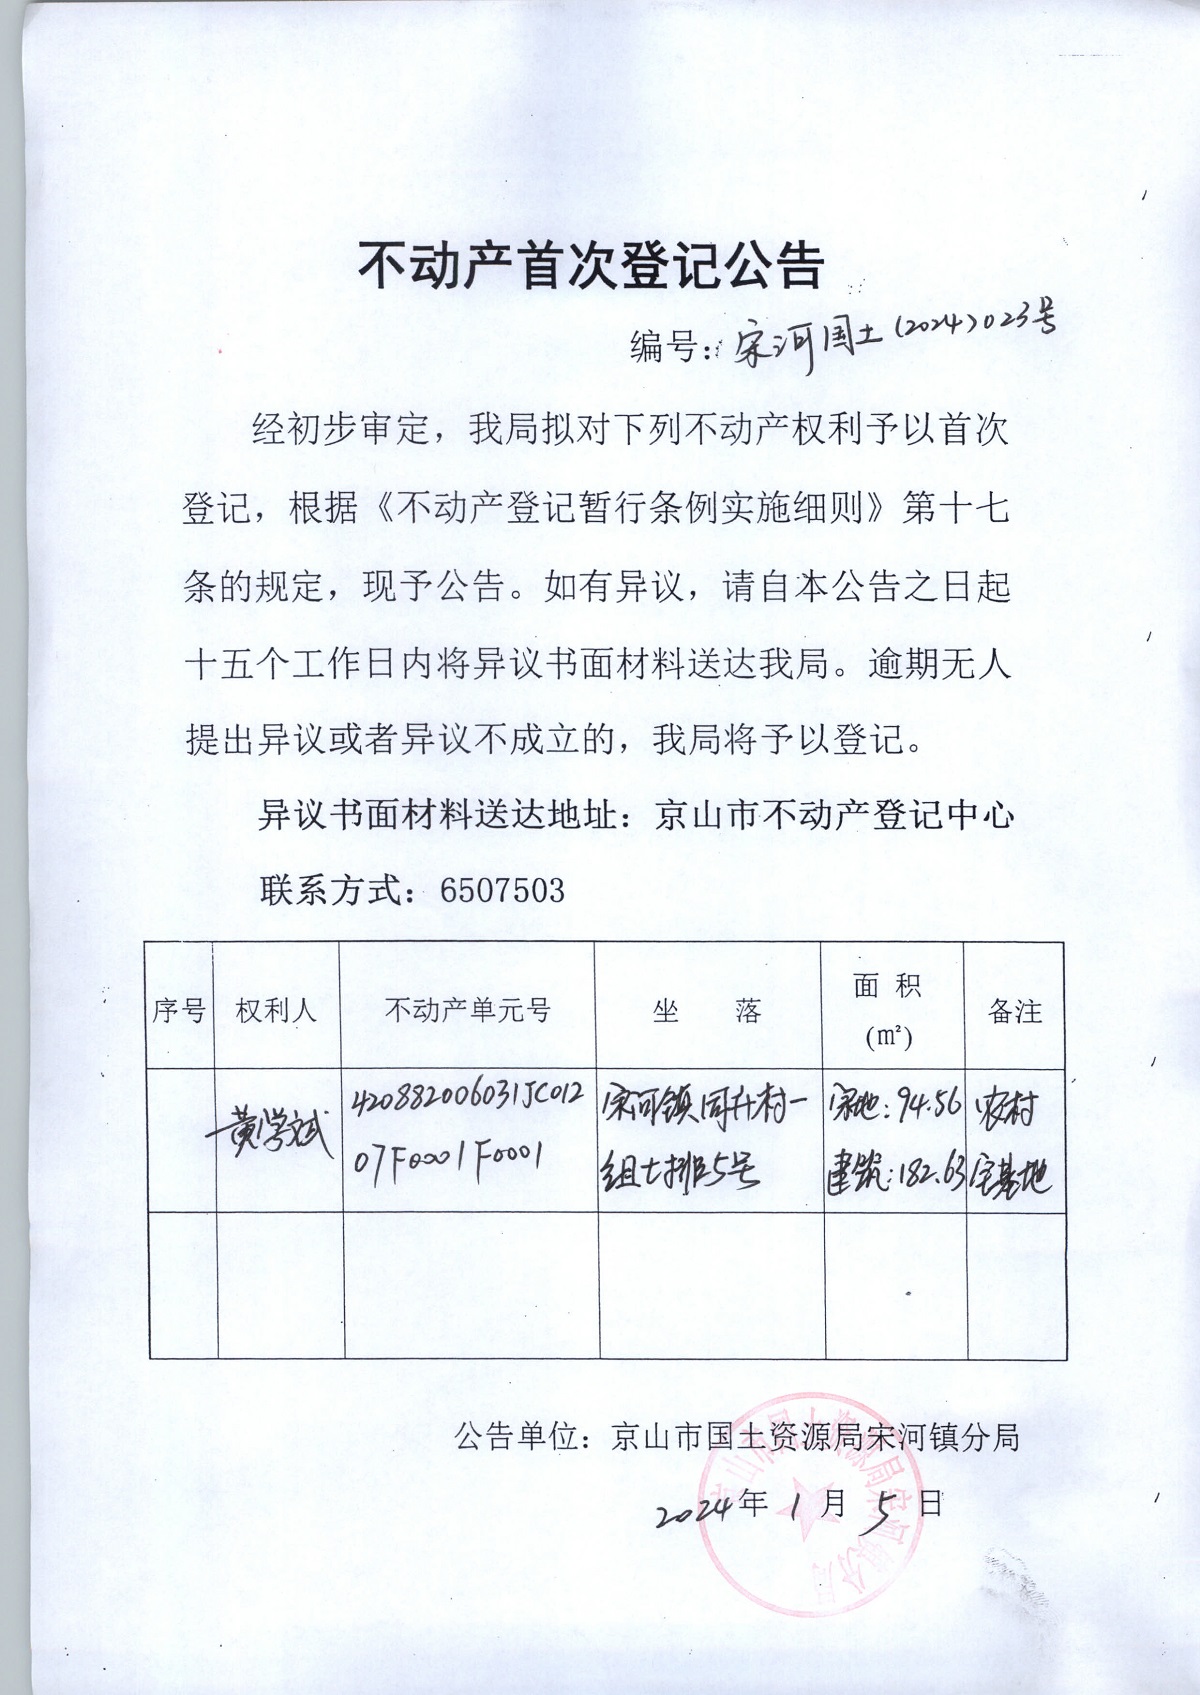 不动产首次登记公告
编号：宋河国土（2024）023号
经初步审定，我局拟对下列不动产权利予以首次
登记，根据《不动产登记暂行条例实施细则》第十七
条的规定，现予公告。如有异议，请自本公告之日起
十五个工作日内将异议书面材料送达我局。逾期无人
提出异议或者异议不成立的，我局将予以登记。
异议书面材料送达地址：京山市不动产登记中心
联系方式：6507503
序号 权利人 不动产单元号 坐 落 面 积 (㎡) 备注
黄学斌 420882006031JC012 宋河镇同升村一 宗地：94.56 农村
07F0001F0001 组七排5号 建筑：182.63 宅基地
公告单位：京山市国土资源局宋河镇分局
2024年1月5日
京山市国土资源局宋河镇分局